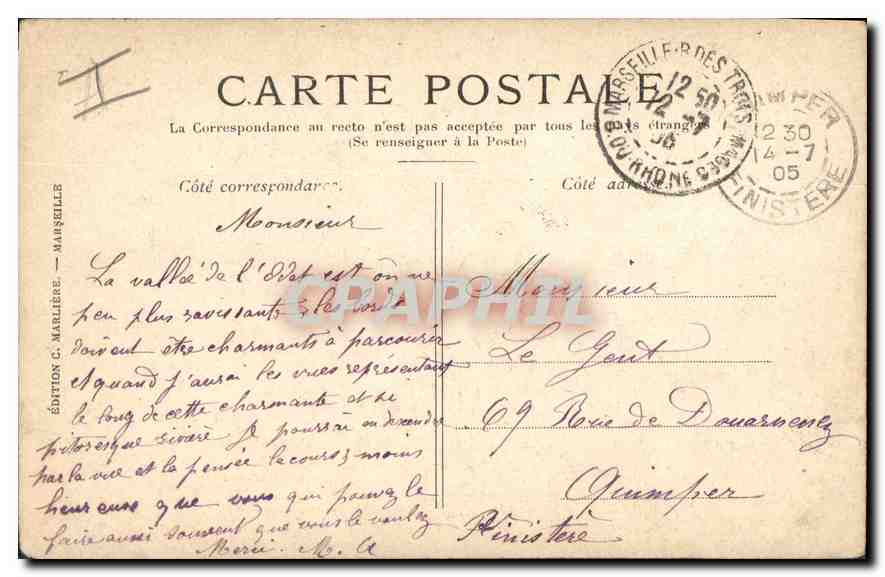 CARTE POSTALE
La Correspondance au recto n'est pas acceptée par tous les pays étrangers
(Se renseigner à la Poste)
Côté correspondance.
Côté adresse.
ÉDITION C. MARLIÈRE. — MARSEILLE
MARSEILLE · R. DES TROIS MAGES
BOU-RHONE
12 50
12 -7
QUIMPER
FINISTERE
2 30
14 -7
05
CPAPHIL
Monsieur
La vallée de l'Odet est on ne
peu plus ravissante & les bords
doivent être charmants à parcourir
et quand j'aurai les vues représentant
le long de cette charmante et si
pitoresque rivière je pourrai en descendre
par la vue et la pensée le cours, moins
heureuse que vous qui pouvez le
faire aussi souvent que vous le voulez
Merci. M. A
Monsieur
Le Gent
69 Rue de Douarnenez
Quimper
Finistère